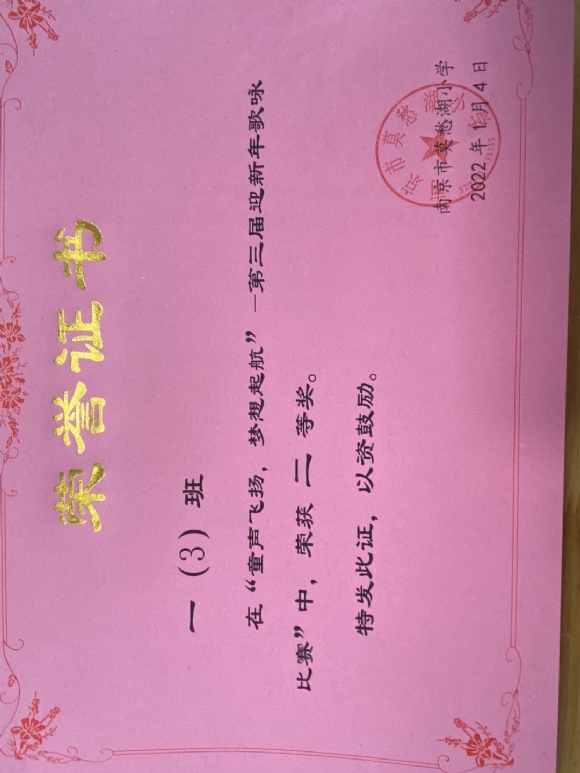 荣誉证书
一（3）班
在“童声飞扬，梦想起航”—第三届迎新年歌咏
比赛”中，荣获 二 等奖。
特发此证，以资鼓励。
南京市莫愁湖小学
2022年1月4日